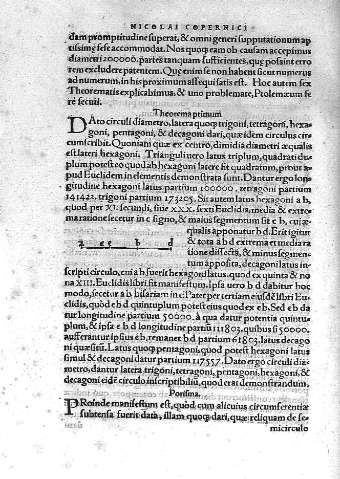 NICOLAI COPERNICI
dam promptitudine superat, & omni generi supputationum ap
tissime sese accommodat. Nos quoque ob causam accepimus
diametri 200000. partes tanquam sufficientes, quæ possint erro
rem excludere patentem. Quæ enim se non habent sicut numerus
ad numerum, in his proximum assequi satis est. Hoc autem sex
Theorematis explicabimus, & uno problemate, Ptolemæum fe
re secuti.
Theorema primum.
DAto circuli diametro, latera quoque trigoni, tetragoni, hexa
goni, pentagoni, & decagoni dari, quæ idem circulus cir
cumscribit. Quoniam quæ ex centro, dimidia diametri æqualis
est lateri hexagoni. Trianguli vero latus triplum, quadrati du
plum potest eo quod ab hexagoni latere fit quadratum, prout a
pud Euclidem in elementis demonstrata sunt. Dantur ergo lon
gitudine hexagoni latus partium 100000, tetragoni partium
141422, trigoni partium 173205. Sit autem latus hexagoni a b,
quod per XI. secundi, sive XXX. sexti Euclidis, media & extre
ma ratione secetur in c signo, & maius segmentum sit c b, cui
æqualis apponatur b d. Erit igitur
& tota a b d extrema et media ra
tione dissecta, & minus segmen
tum apposita, decagoni latus in
a e c b d
scripti circulo, cui a b fuerit hexagoni latus. quod ex quinta & no
na XIII. Euclidis libri fit manifestum. Ipsa vero b d dabitur hoc
modo, secetur a b bifariam in e. Patet per tertiam eiusdē libri Eu
clidis, quòd e b d quintuplum potest eius quod ex e b. Sed e b da
tur longitudine partium 50000. à qua datur potentia quintu
plum, & ipsa e b d longitudine partium 111803. quibus si 50000.
aufferantur ipsius e b, remanet b d partium 61803. latus decago
ni quæsiti. Latus quoque pentagoni, quod potest hexagoni latus
simul & decagoni datur partium 117557. Dato ergo circuli dia
metro, dantur latera trigoni, tetragoni, pentagoni, hexagoni, &
decagoni eidē circulo inscriptibiliū, quod erat demonstrandum.
Porisma.
PRoinde manifestum est, quod cum alicuius circumferentiæ
subtensa fuerit data, illam quoque dari, quæ reliquam de se
micirculo